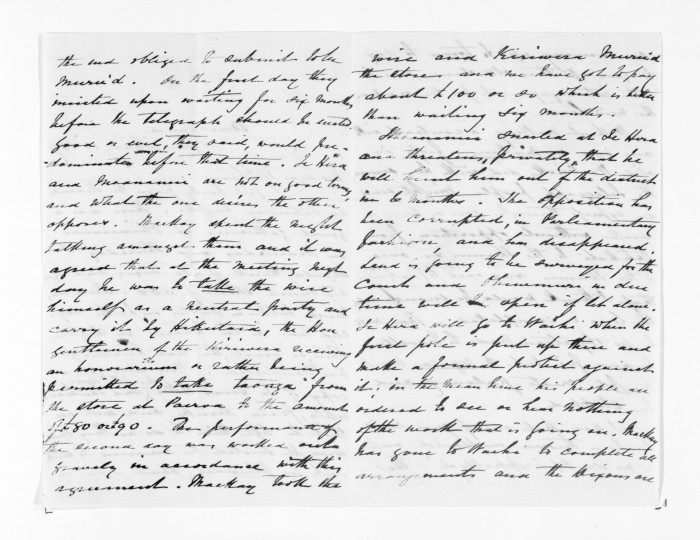 the end obliged to submit to be
Muru'd. On the first day they
insisted upon waiting for six months
before the telegraph should be erected
good or evil, they said, would pre-
dominate before that time. Te Hira
and are not on good terms,
and what the one desires the other
opposes. Mackay spent the night
talking amongst them and it was
agreed that at the meeting next
day he was to take the wire
himself as a neutral party and
carry it by Hikutaia, the Hon
gentlemen of the Kiriwera receiving
an honorarium or rather being
permitted to take taonga from
the store at Paeroa to the amount
of £80 or 90. The performance of
the second day was worked out
gravely in accordance with this
agreement. Mackay took the
wire and Kiriwera Muru'd
the store and we have got to pay
about £100 or so which is better
than waiting six months.
snarled at Te Hira
and threatens, privately, that he
will hunt him out of the district
in 6 months. The opposition has
been corrupted, in Parliamentary
fashion, and has disappeared.
Land is going to be surveyed for the
Court and Ohinemuri in due
time will open if let alone.
Te Hira will go to Waihi when the
first pole is put up there and
make a formal protest against
it; in the mean time his people are
ordered to see or hear nothing
of the work that is going on. Mackay
has gone to Waihi to complete all
arrangements and the Dixons are